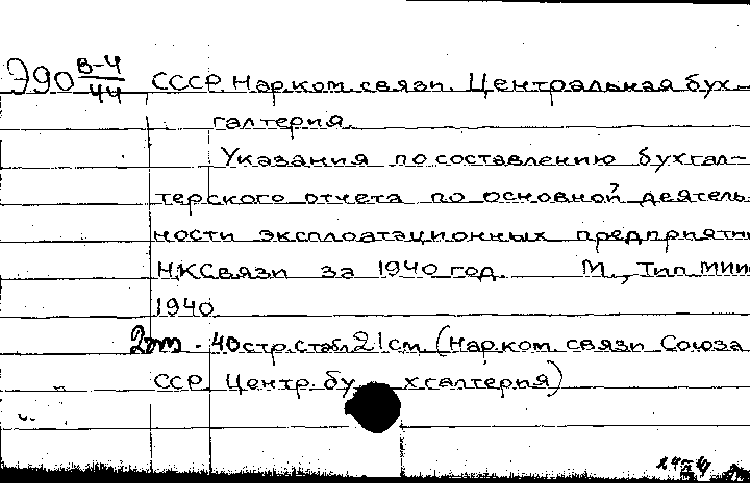 Э90 В-4/44 СССР. Нар.ком.связи. Центральная бух-
галтерия.
Указания по составлению бухгал-
терского отчета по основной деятель-
ности эксплоатационных предприяти
НКСвязи за 1940 год. М., Тип
1940.
2эт - 40 стр. с табл. 21 см. (Нар.ком. связи Союза
ССР. Центр. бухгалтерия)